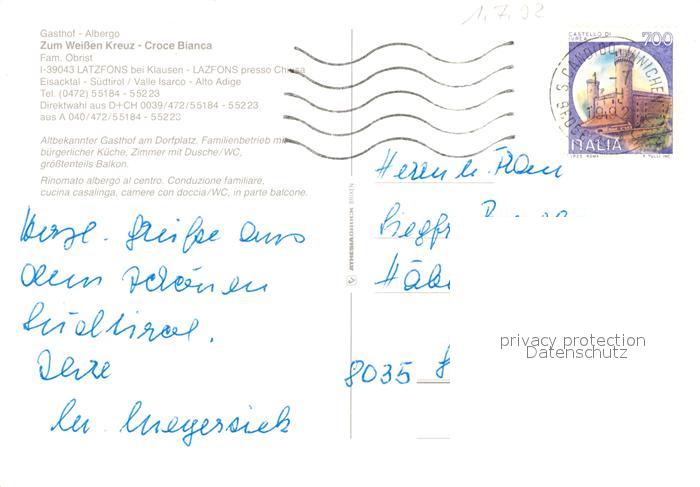 1.7.92
Gasthof - Albergo
Zum Weißen Kreuz - Croce Bianca
Fam. Obrist
I-39043 LATZFONS bei Klausen - LAZFONS presso Chiusa
Eisacktal - Südtirol / Valle Isarco - Alto Adige
Tel. (0472) 55184 - 55223
Direktwahl aus D+CH 0039/472/55184 - 55223
aus A 040/472/55184 - 55223
Altbekannter Gasthof am Dorfplatz. Familienbetrieb mit
bürgerlicher Küche, Zimmer mit Dusche/WC,
größtenteils Balkon.
Rinomato albergo al centro. Conduzione familiare,
cucina casalinga, camere con doccia/WC, in parte balcone.
CASTELLO DI
IVREA
700
ITALIA
Herrn u. Frau
Siegfr
8035
Herzl. Grüße aus
dem schönen
Südtirol.
privacy protection
Datenschutz